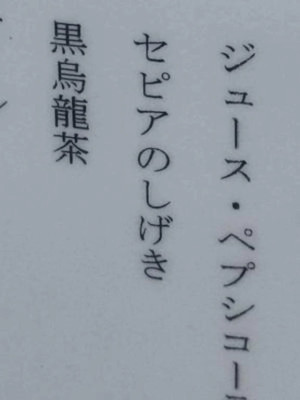 ジュース・ペプシコー
セピアのしげき
黒烏龍茶